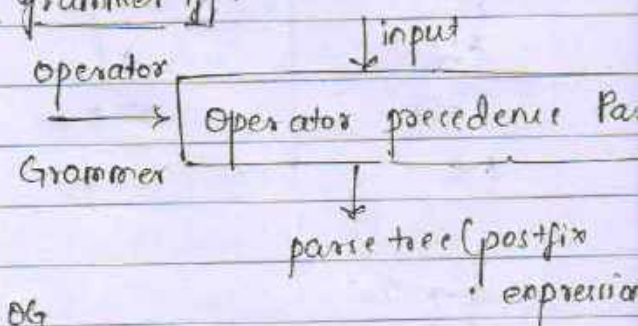 grammer
input
operator
Operator precedence Pa
Grammer
parse tree (postfix
expression
OG